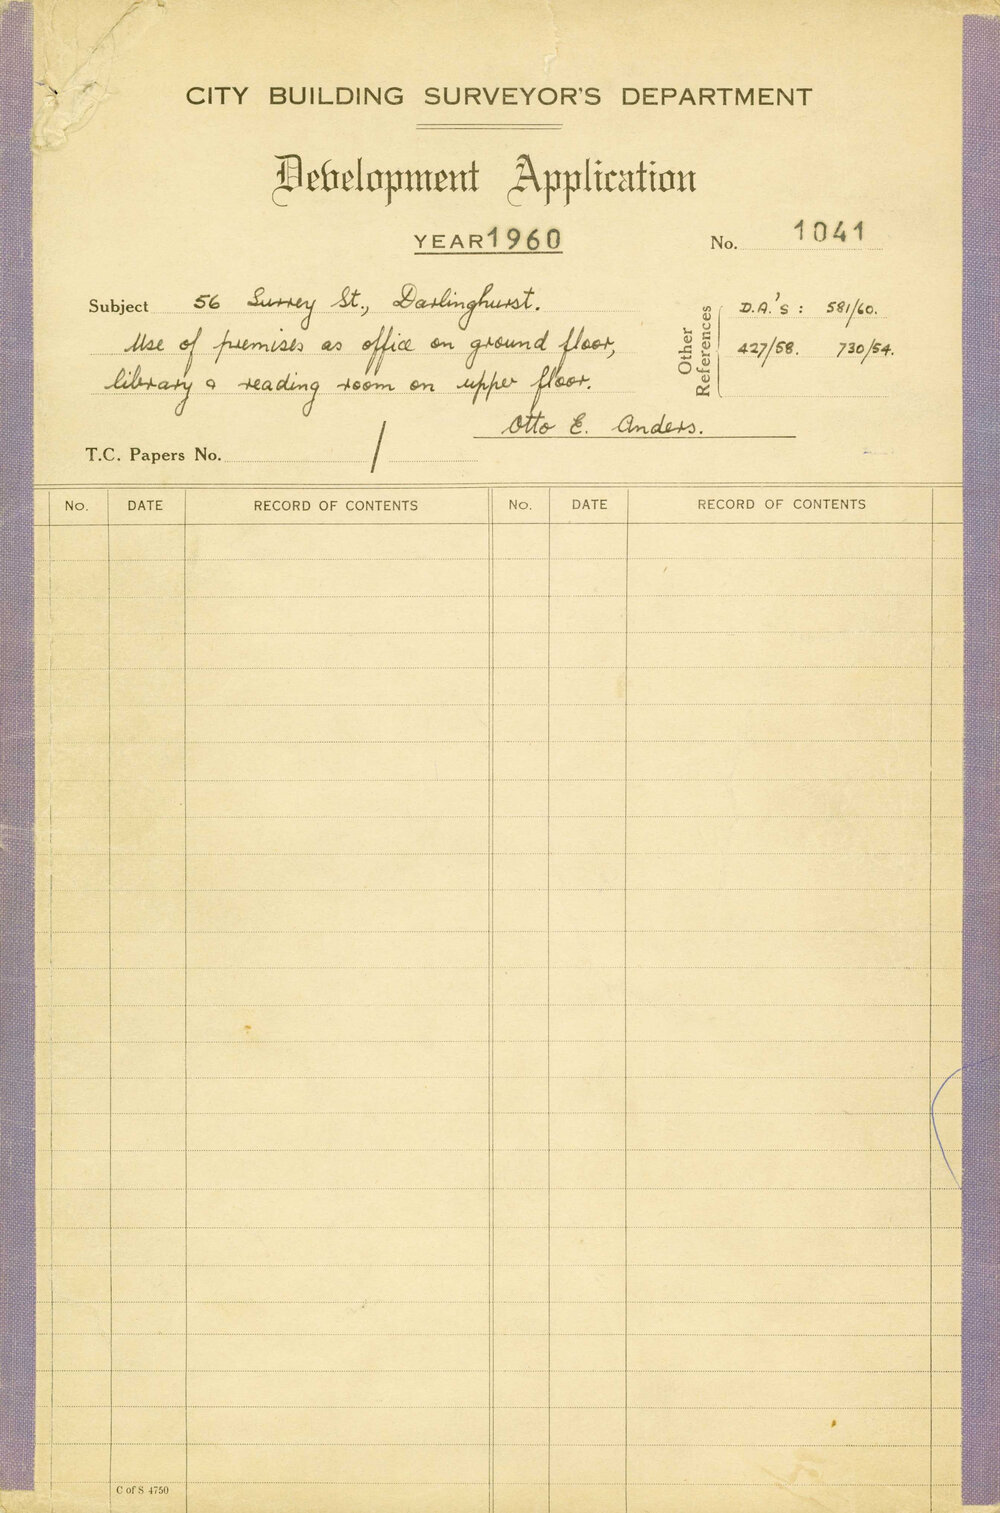 CITY BUILDING SURVEYOR'S DEPARTMENT
Development Application
YEAR 1960
No. 1041
Subject 56 Surrey St., Darlinghurst.
Use of premises as office on ground floor,
library & reading room on upper floor.
Otto E. Anders.
Other References
D.A.'s : 581/60.
427/58. 730/54.
T.C. Papers No. /
No. DATE RECORD OF CONTENTS No. DATE RECORD OF CONTENTS
C of S 4750